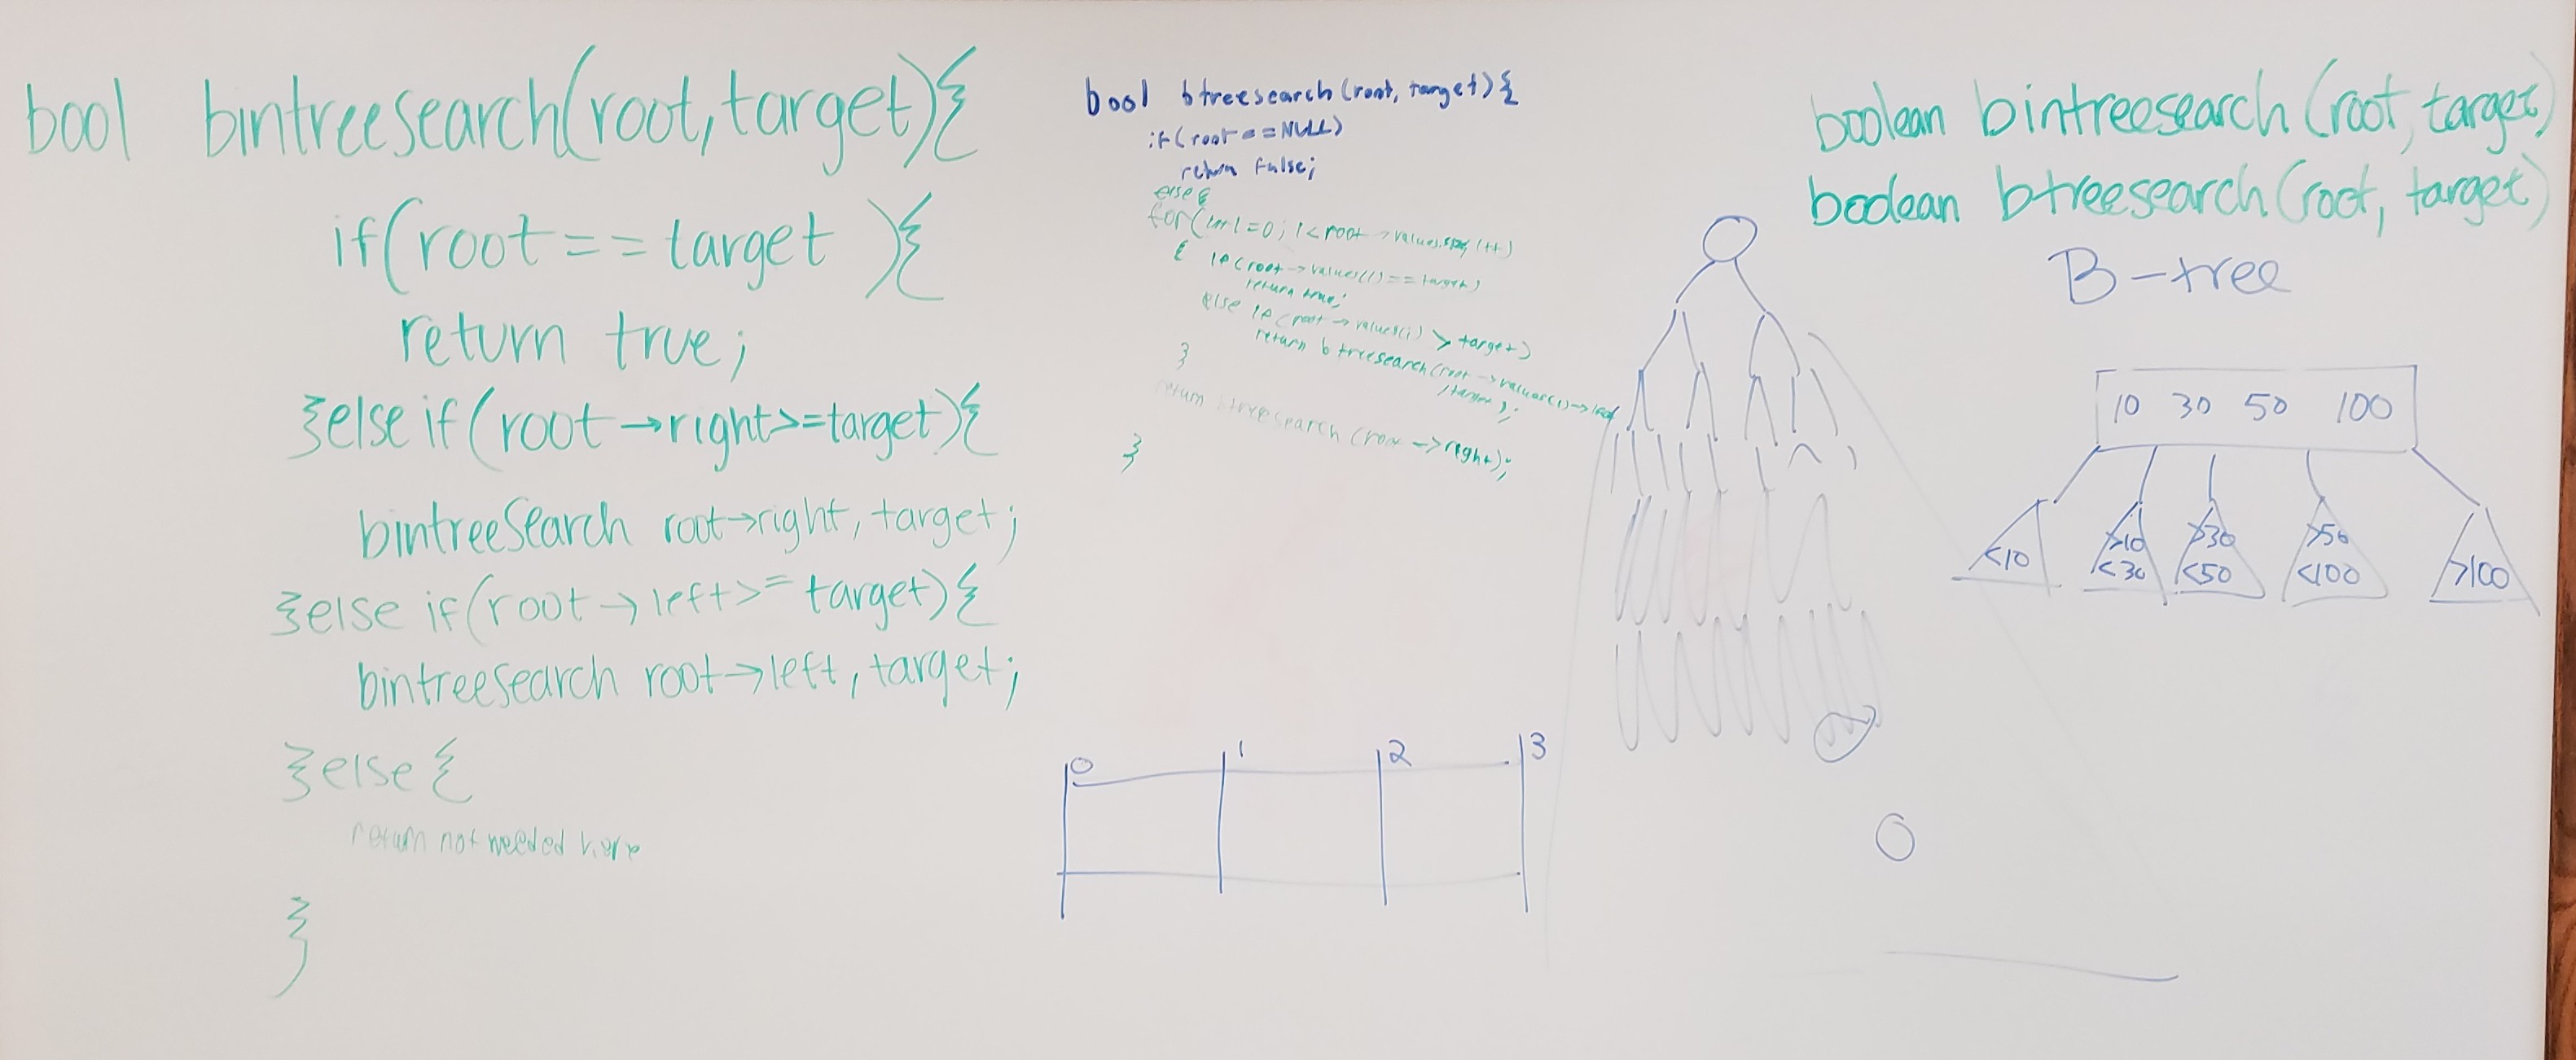 bool bintreesearch(root, target){
if(root == target ){
return true;
}else if(root→right>=target){
bintreeSearch root→right, target;
}else if(root→left>=target){
bintreesearch root→left, target;
}else{
return not needed here
}
bool btreesearch(root, target){
if(root==NULL)
return false;
else{
for(int i=0; i<root→values.size; i++)
{ if(root→values(i)==target)
return true;
else if(root→values(i) > target)
return btreesearch(root→values(i)→left
, target);
}
return btreesearch(root→right);
}
0 1 2 3
boolean bintreesearch(root, target)
boolean btreesearch(root, target)
B-tree
10 30 50 100
<10 >10 >30 >50 >100
<30 <50 <100